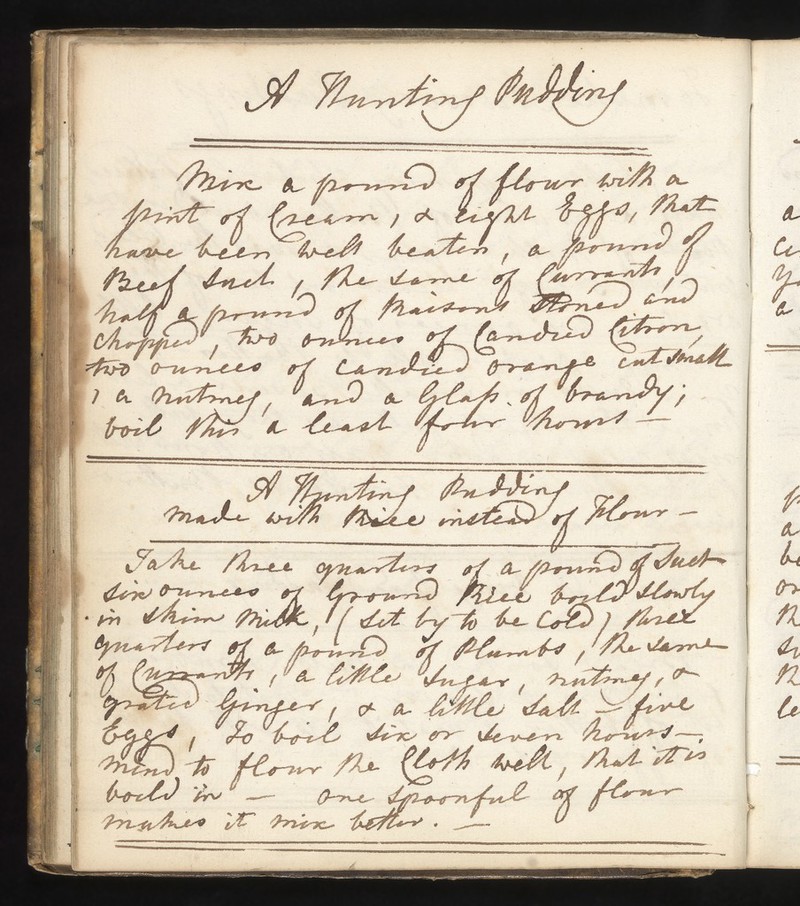 A Hunting Pudding
Mix a pound of flour with a
pint of Cream, & eight Eggs, that
have been well beaten, a pound of
Beef Suet, the same of Currants,
half a pound of Raisons stoned and
chopped, two ounces of Candied Citron,
two ounces of candied orange cut small
, a nutmeg, and a Glass of brandy;
boil this a least four hours —
A Hunting Pudding
made with Rice instead of Flour —
Take three quarters of a pound of Suet
six ounces of Ground Rice boild slowly
in skim Milk, (set by to be Cold) three
quarters of a pound of Plumbs, the same
of Currants, a little sugar, nutmeg, &
grated Ginger, & a little salt — five
Eggs, To boil six or seven hours —.
mind to flour the Cloth well, that it is
boild in — one spoonful of flour
makes it mix better. —